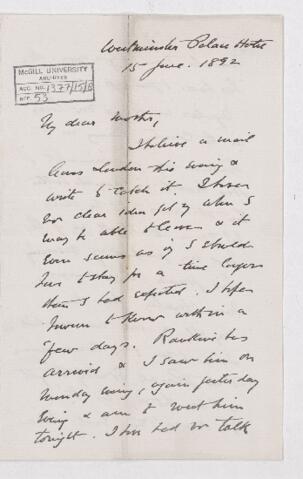 Westminster Palace Hotel
15 June. 1892
McGILL UNIVERSITY
ARCHIVES
ACC. NO. 1377/15/
REF. 53
My dear Mother,
I believe a mail
leaves London this evening &
write to catch it. I have
no clear idea yet of when I
may be able to leave & it
even seems as if I should
have to stay for a time longer
than I had expected. I hope
to know within a
few days. Rankine has
arrived & I saw him on
Monday evening, again yesterday
evening & am to meet him
tonight. I have had no talk